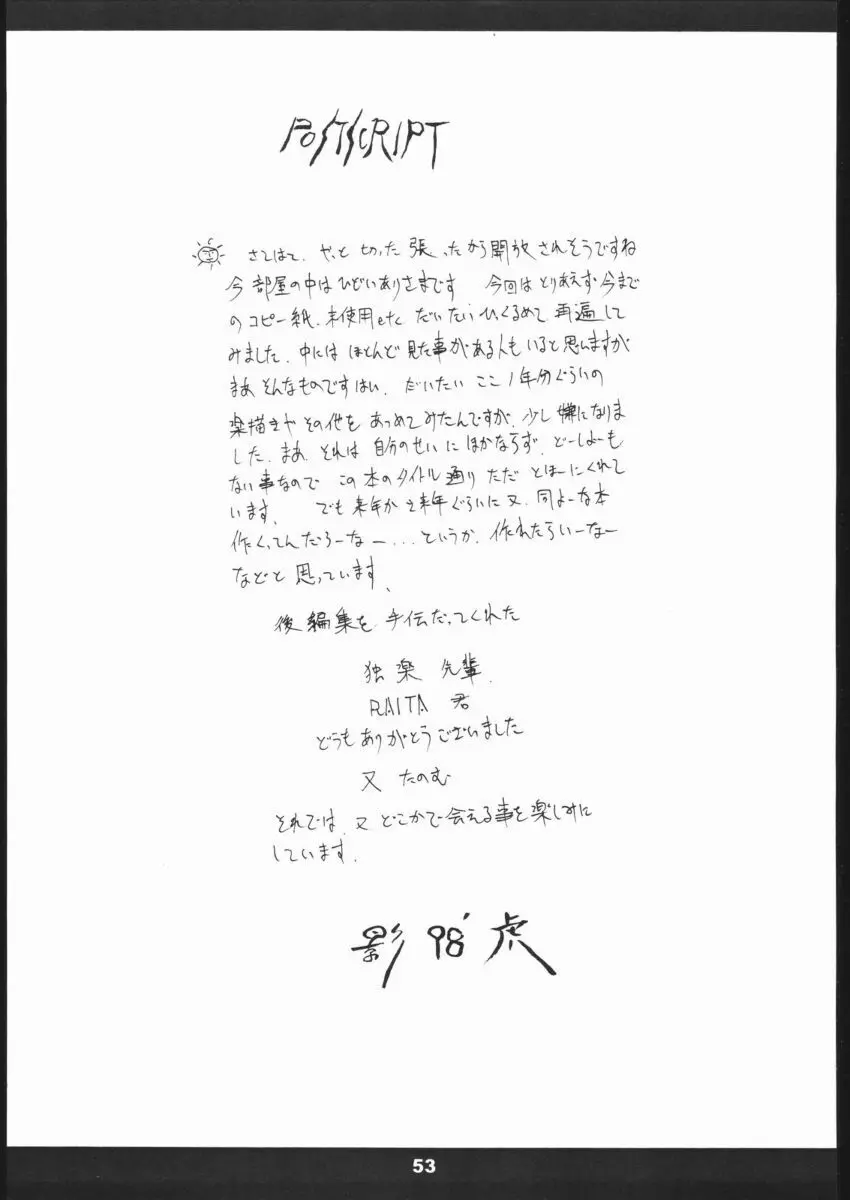 POSTSCRIPT
さてはて、やっと切った張ったから開放されそうですね
今部屋の中はひどいありさまです 今回はとりあえず今まで
のコピー紙、未使用etc だいたいひっくるめて再編して
みました、中にはほとんど見た事がある人もいると思いますが
まあそんなものですはい、だいたいここ1年分ぐらいの
楽描きやその他をあつめてみたんですが、少し嫌になりま
した、まあ それは自分のせいにほかならず、どーしよーも
ない事なので この本のタイトル通りただ とほーにくれて
います、 でも来年か再来年ぐらいに又、同よーな本
作くってんだろーなー...というか、作れたらいーなー
などと思っています、
後編集を手伝だってくれた
独楽 先輩、
RAITA 君
どうもありがとうございました
又 たのむ
それでは、又どこかで会える事を楽しみに
しています、
影 98' 虎
53